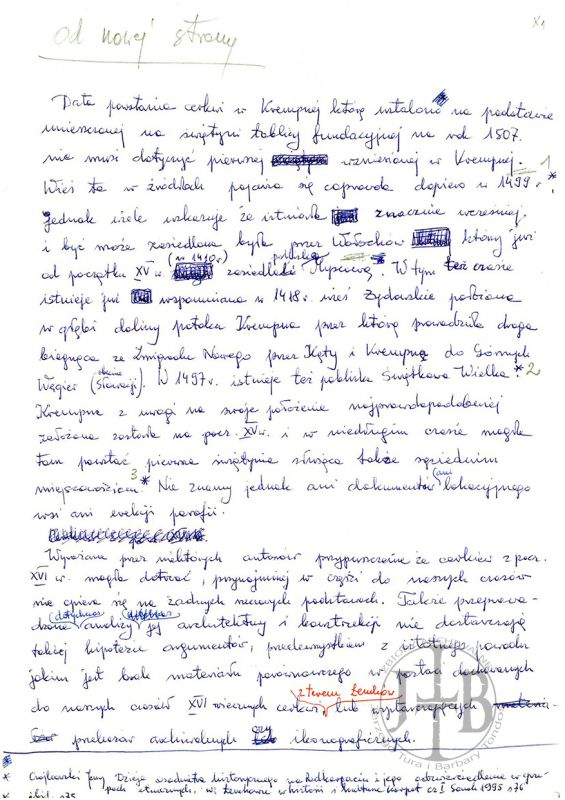 od nowej strony
X1
Data powstania cerkwi w Krempnej którą ustalono na podstawie
umieszczonej na świątyni tablicy fundacyjnej na rok 1507.
nie musi dotyczyć pierwszej wzniesionej w Krempnej. 1
Wieś ta w źródłach pojawia się coprawda dopiero w 1499 r *.
jednak wiele wskazuje że istniała znacznie wcześniej
i być może zasiedlona była przez Wołochów którzy już
od początku XV w. (w 1410 r) zasiedlili pobliską Mycową. W tym też czasie
istnieje już wspomniana w 1418 r. wieś Żydowskie położona
w głębi doliny potoka Krempna przez którą prowadziła droga
biegnąca ze Żmigrodu Nowego przez Kąty i Krempną do Górnych
Węgier (obecnie Słowacji). W 1497 r. istnieje też pobliska Świątkowa Wielka * 2
Krempna z uwagi na swoje położenie najprawdopodobniej
założona została na pocz. XV w. i w niedługim czasie mogła
tam powstać pierwsza świątynia służąca także sąsiednim
miejscowościom 3 * Nie znamy jednak ani dokumentów (ani lokacyjnego
wsi ani erekcji parafii.
Wyrażane przez niektórych autorów przypuszczenie że cerkiew z pocz.
XVI w. mogła dotrwać, przynajmniej w części do naszych czasów
nie opiera się na żadnych naukowych podstawach. Także przeprowa-
dzone dotychczas analizy jej architektury i konstrukcji nie dostarczają
takiej hipotezie argumentów, przedewszystkiem z istotnego powodu
jakim jest brak materiału porównawczego w postaci dochowanych
do naszych czasów XVI wiecznych cerkwi z terenu Łemków lub wystarczających
przekazów archiwalnych czy ikonograficznych.
* Czajkowski Jerzy Dzieje osadnictwa historycznego na Podkarpaciu i jego odzwierciedlenie w gru-
pach etnicznych. w: Łemkowie w historii i kulturze Karpat cz I Sanok 1995 s 76
* ibid. s 75